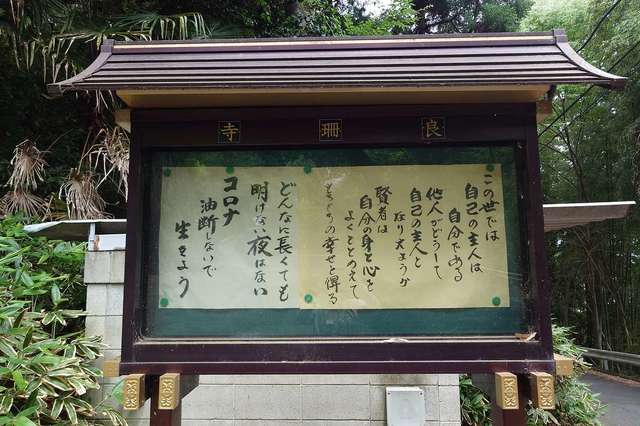 良珊寺
この世では
自己の主人は
自分である
他人がどうして
自己の主人と
なり えようか
賢者は
自分の身と心を
よくととのえて
もろもろの幸せと得る
どんなに長くても
明けない夜はない
コロナ
油断しないで
生きよう